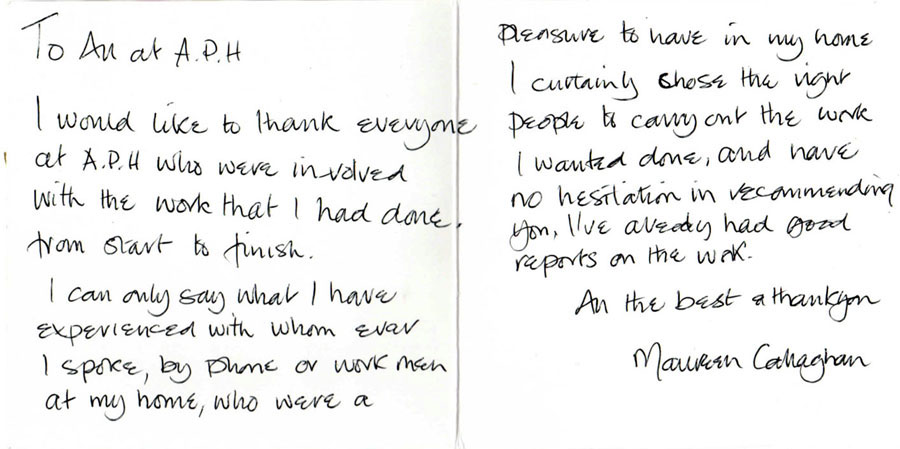 To All at A.P.H
I would like to thank everyone
at A.P.H who were involved
with the work that I had done.
from start to finish.
I can only say what I have
experienced with whom ever
I spoke, by phone or work men
at my home, who were a
pleasure to have in my home
I curtainly chose the right
people to carry out the work
I wanted done, and have
no hesitation in recommending
you, I've already had good
reports on the work.
All the best & thankyou
Maureen Callaghan